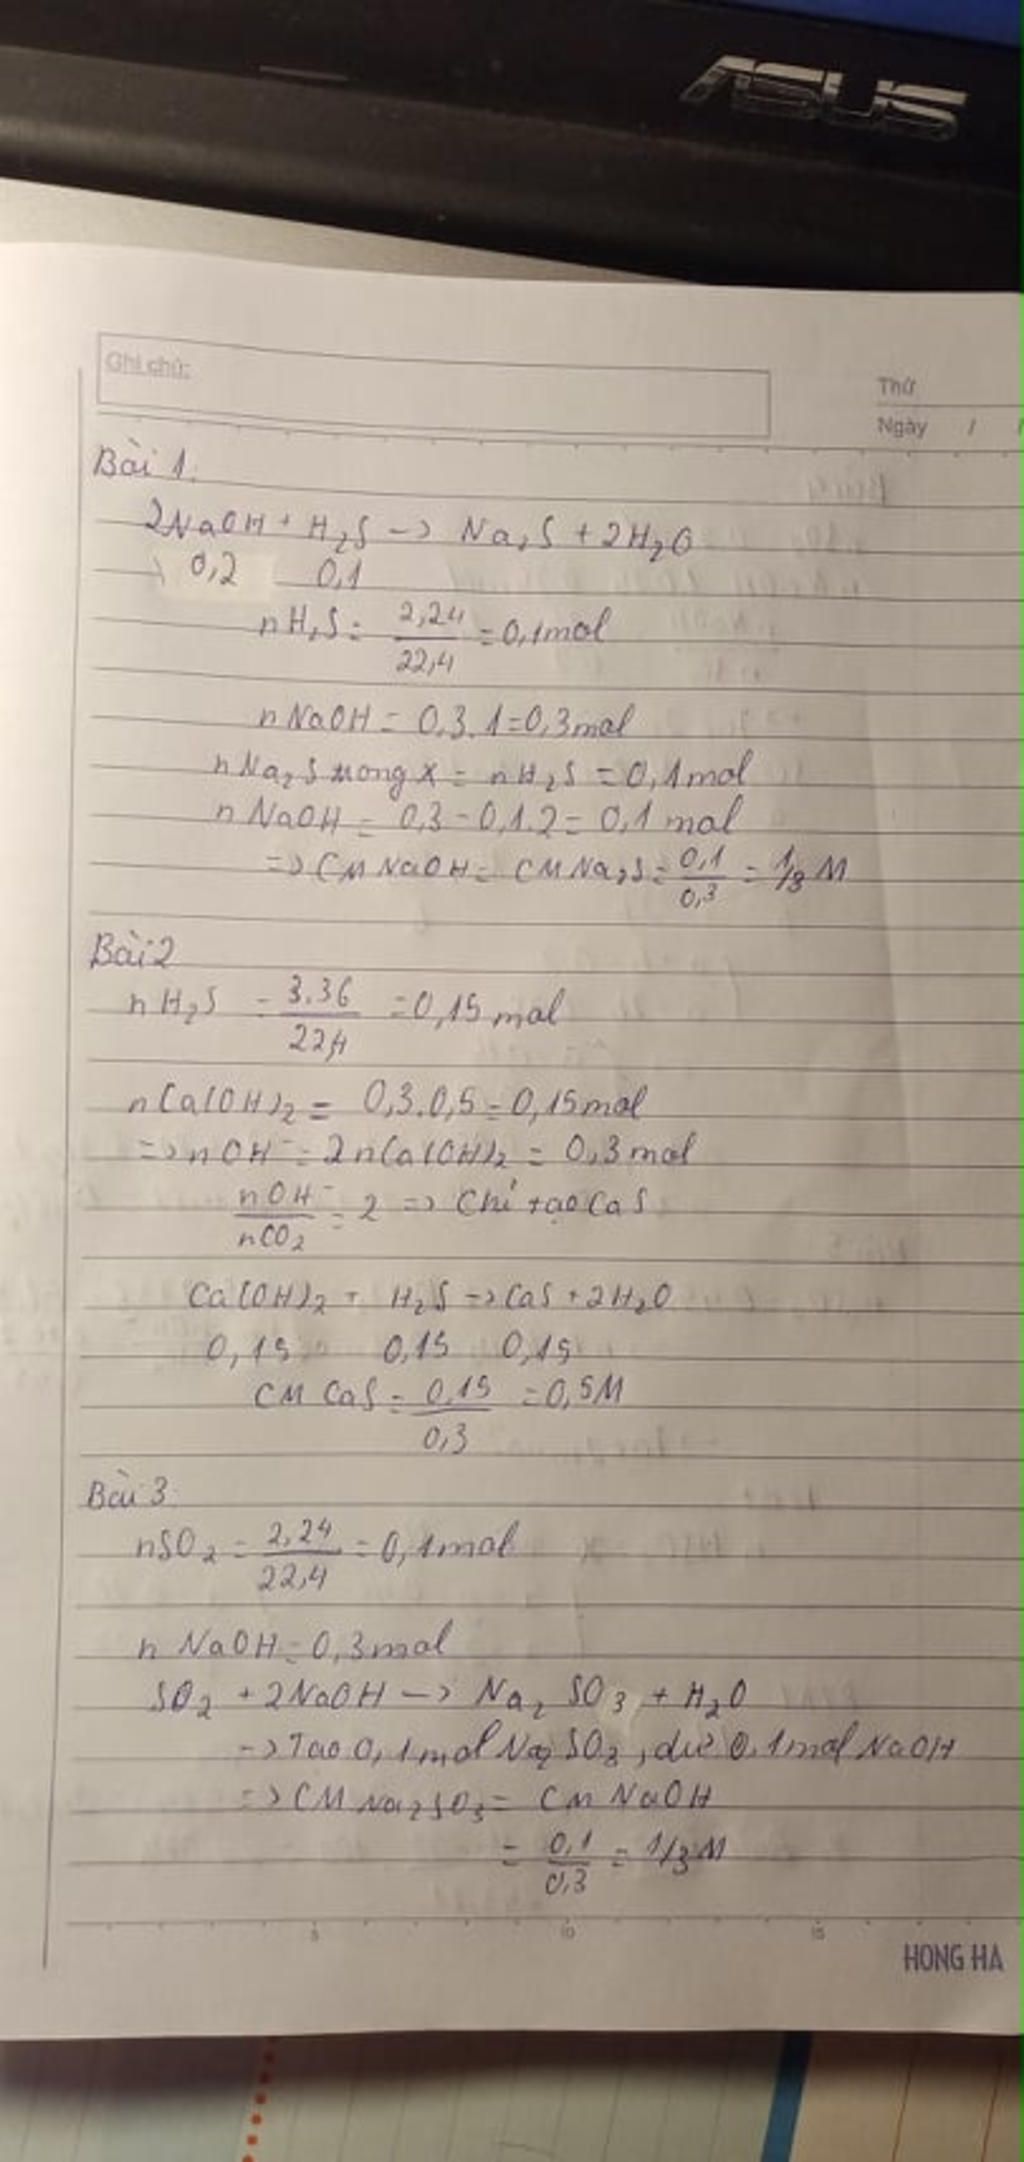 ASUS
Ghi chú:
Thứ
Ngày / /
Bài 1.
2NaOH + H₂S -> Na₂S + 2H₂O
-> 0,2 0,1
nH₂S = 2,24/22,4 = 0,1mol
nNaOH = 0,3.1 = 0,3mol
nNa₂S trong X = nH₂S = 0,1mol
nNaOH = 0,3 - 0,1.2 = 0,1 mol
=> CM NaOH = CM Na₂S = 0,1/0,3 = 1/3 M
Bài 2
nH₂S = 3.36/22,4 = 0,15 mol
nCa(OH)₂ = 0,3.0,5 = 0,15mol
=> nOH⁻ = 2nCa(OH)₂ = 0,3 mol
nOH⁻/nCO₂ = 2 => Chỉ tạo CaS
Ca(OH)₂ + H₂S -> CaS + 2H₂O
0,15 0,15 0,15
CM CaS = 0,15/0,3 = 0,5M
Bài 3
nSO₂ = 2,24/22,4 = 0,1mol
n NaOH = 0,3mol
SO₂ + 2NaOH -> Na₂SO₃ + H₂O
-> Tạo 0,1mol Na₂SO₃, dư 0,1mol NaOH
=> CM Na₂SO₃ = CM NaOH
= 0,1/0,3 = 1/3 M
5 10 15
HONG HA